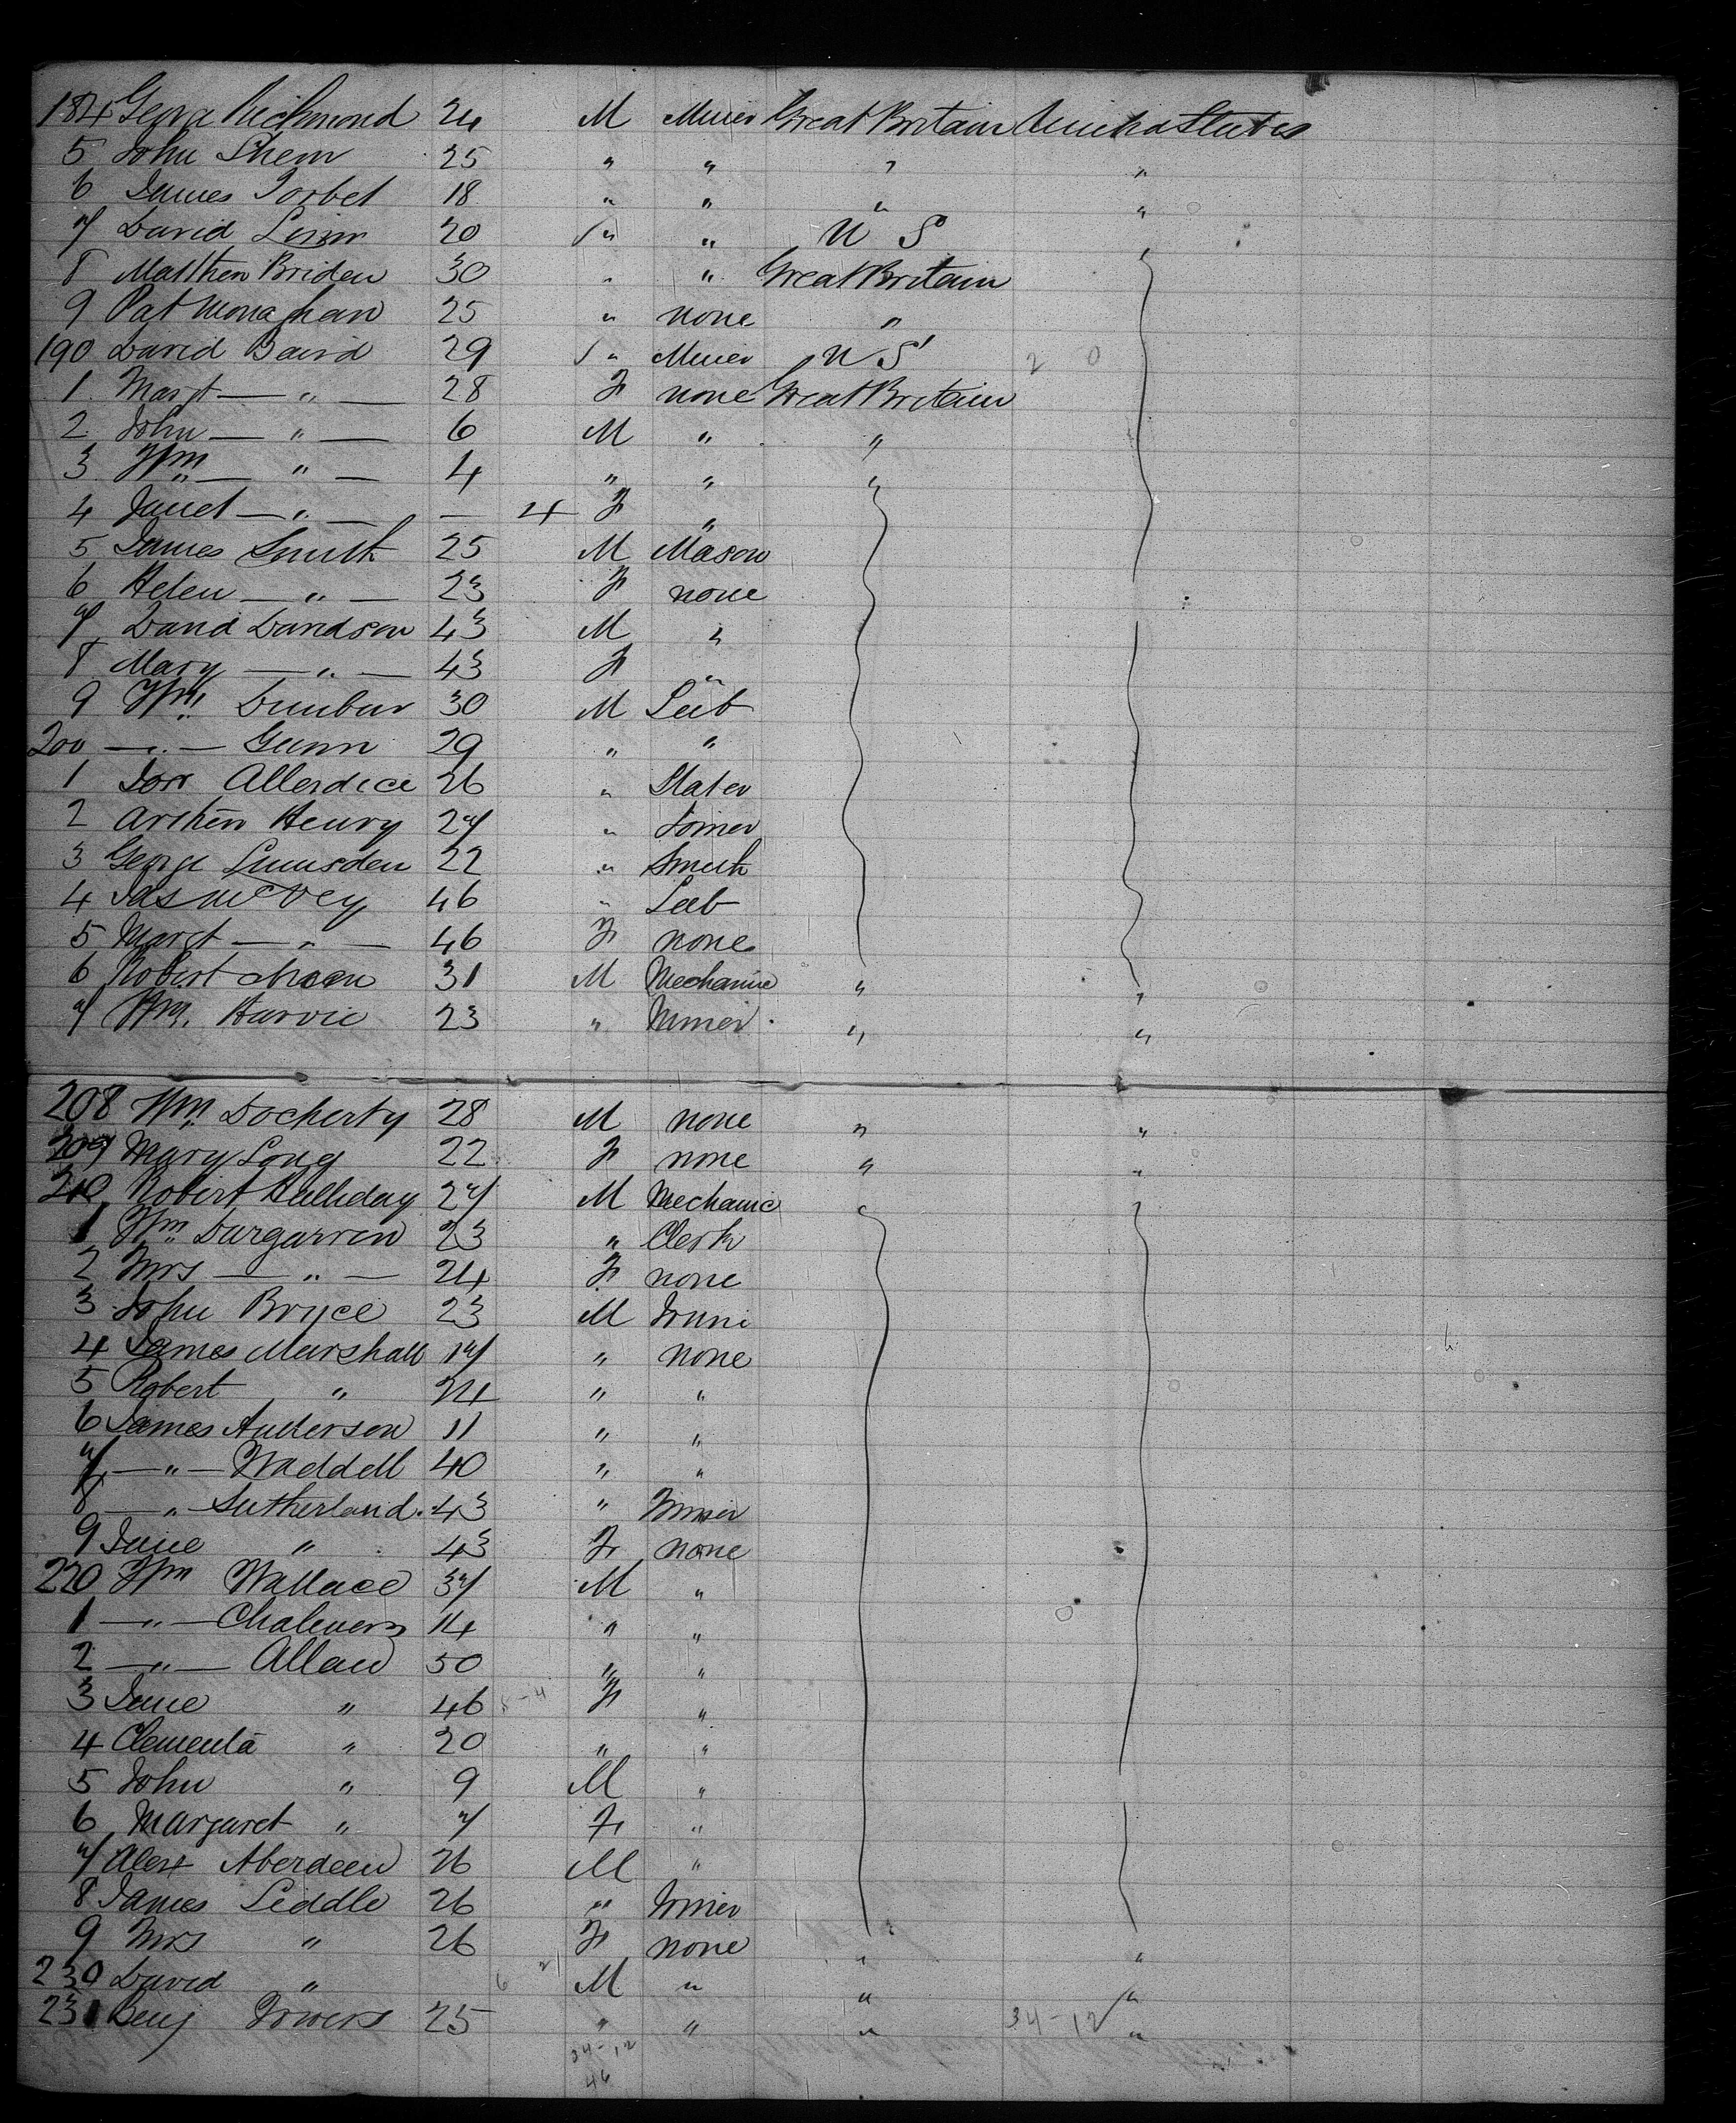 184 George Richmond 24 M Miner Great Britain United States
5 John Shem 25 " " " "
6 James Torbet 18 " " " "
7 David Linn 20 " " U S "
8 Matthew Briden 30 " " Great Britain
9 Pat Monaghan 25 " none "
190 David Baird 29 " Miner U S 20
1 Margt — " — 28 F none Great Britain
2 John — " — 6 M " "
3 Wm — " — 4 " " "
4 Janet — " — — 4 F "
5 James Smith 25 M Mason
6 Helen — " — 23 F none
7 David Davidson 43 M "
8 Mary — " — 43 F "
9 Wm Dunbar 30 M Lab
200 — " — Gunn 29 " "
1 Allerdice 26 " Slater
2 Henry 27 " Joiner
3 George Lumsden 22 " Smith
4 Jas McVey 46 " Lab
5 Margt — " — 46 F none
6 Robert 31 M Mechanic " "
7 Wm. Harvie 23 " Miner " "
208 Wm Docherty 28 M none " "
209 Mary Long 22 F none " "
210 Robert Halliday 27 M Mechanic
1 Wm Dargarven 23 " Clerk
2 Mrs — " — 24 F none
3 John Bryce 23 M
4 James Marshall 17 " none
5 Robert " 24 " "
6 James Anderson 11 " "
7 — " — Waddell 40 " "
8 — " — Sutherland 43 "
9 Jane " 43 F none
220 Wm Wallace 37 M "
1 — " — Chalmers 14 " "
2 — " — Allan 50 " "
3 Jane " 46 F "
4 Clementa " 20 " "
5 John " 9 M "
6 Margaret " 7 F "
7 Alex Aberdeen 26 M "
8 James Liddle 26 " Joiner
9 Mrs " 26 F none " "
230 David " M " " "
231 Benj 25 " " " 34-12 "
34-12
46